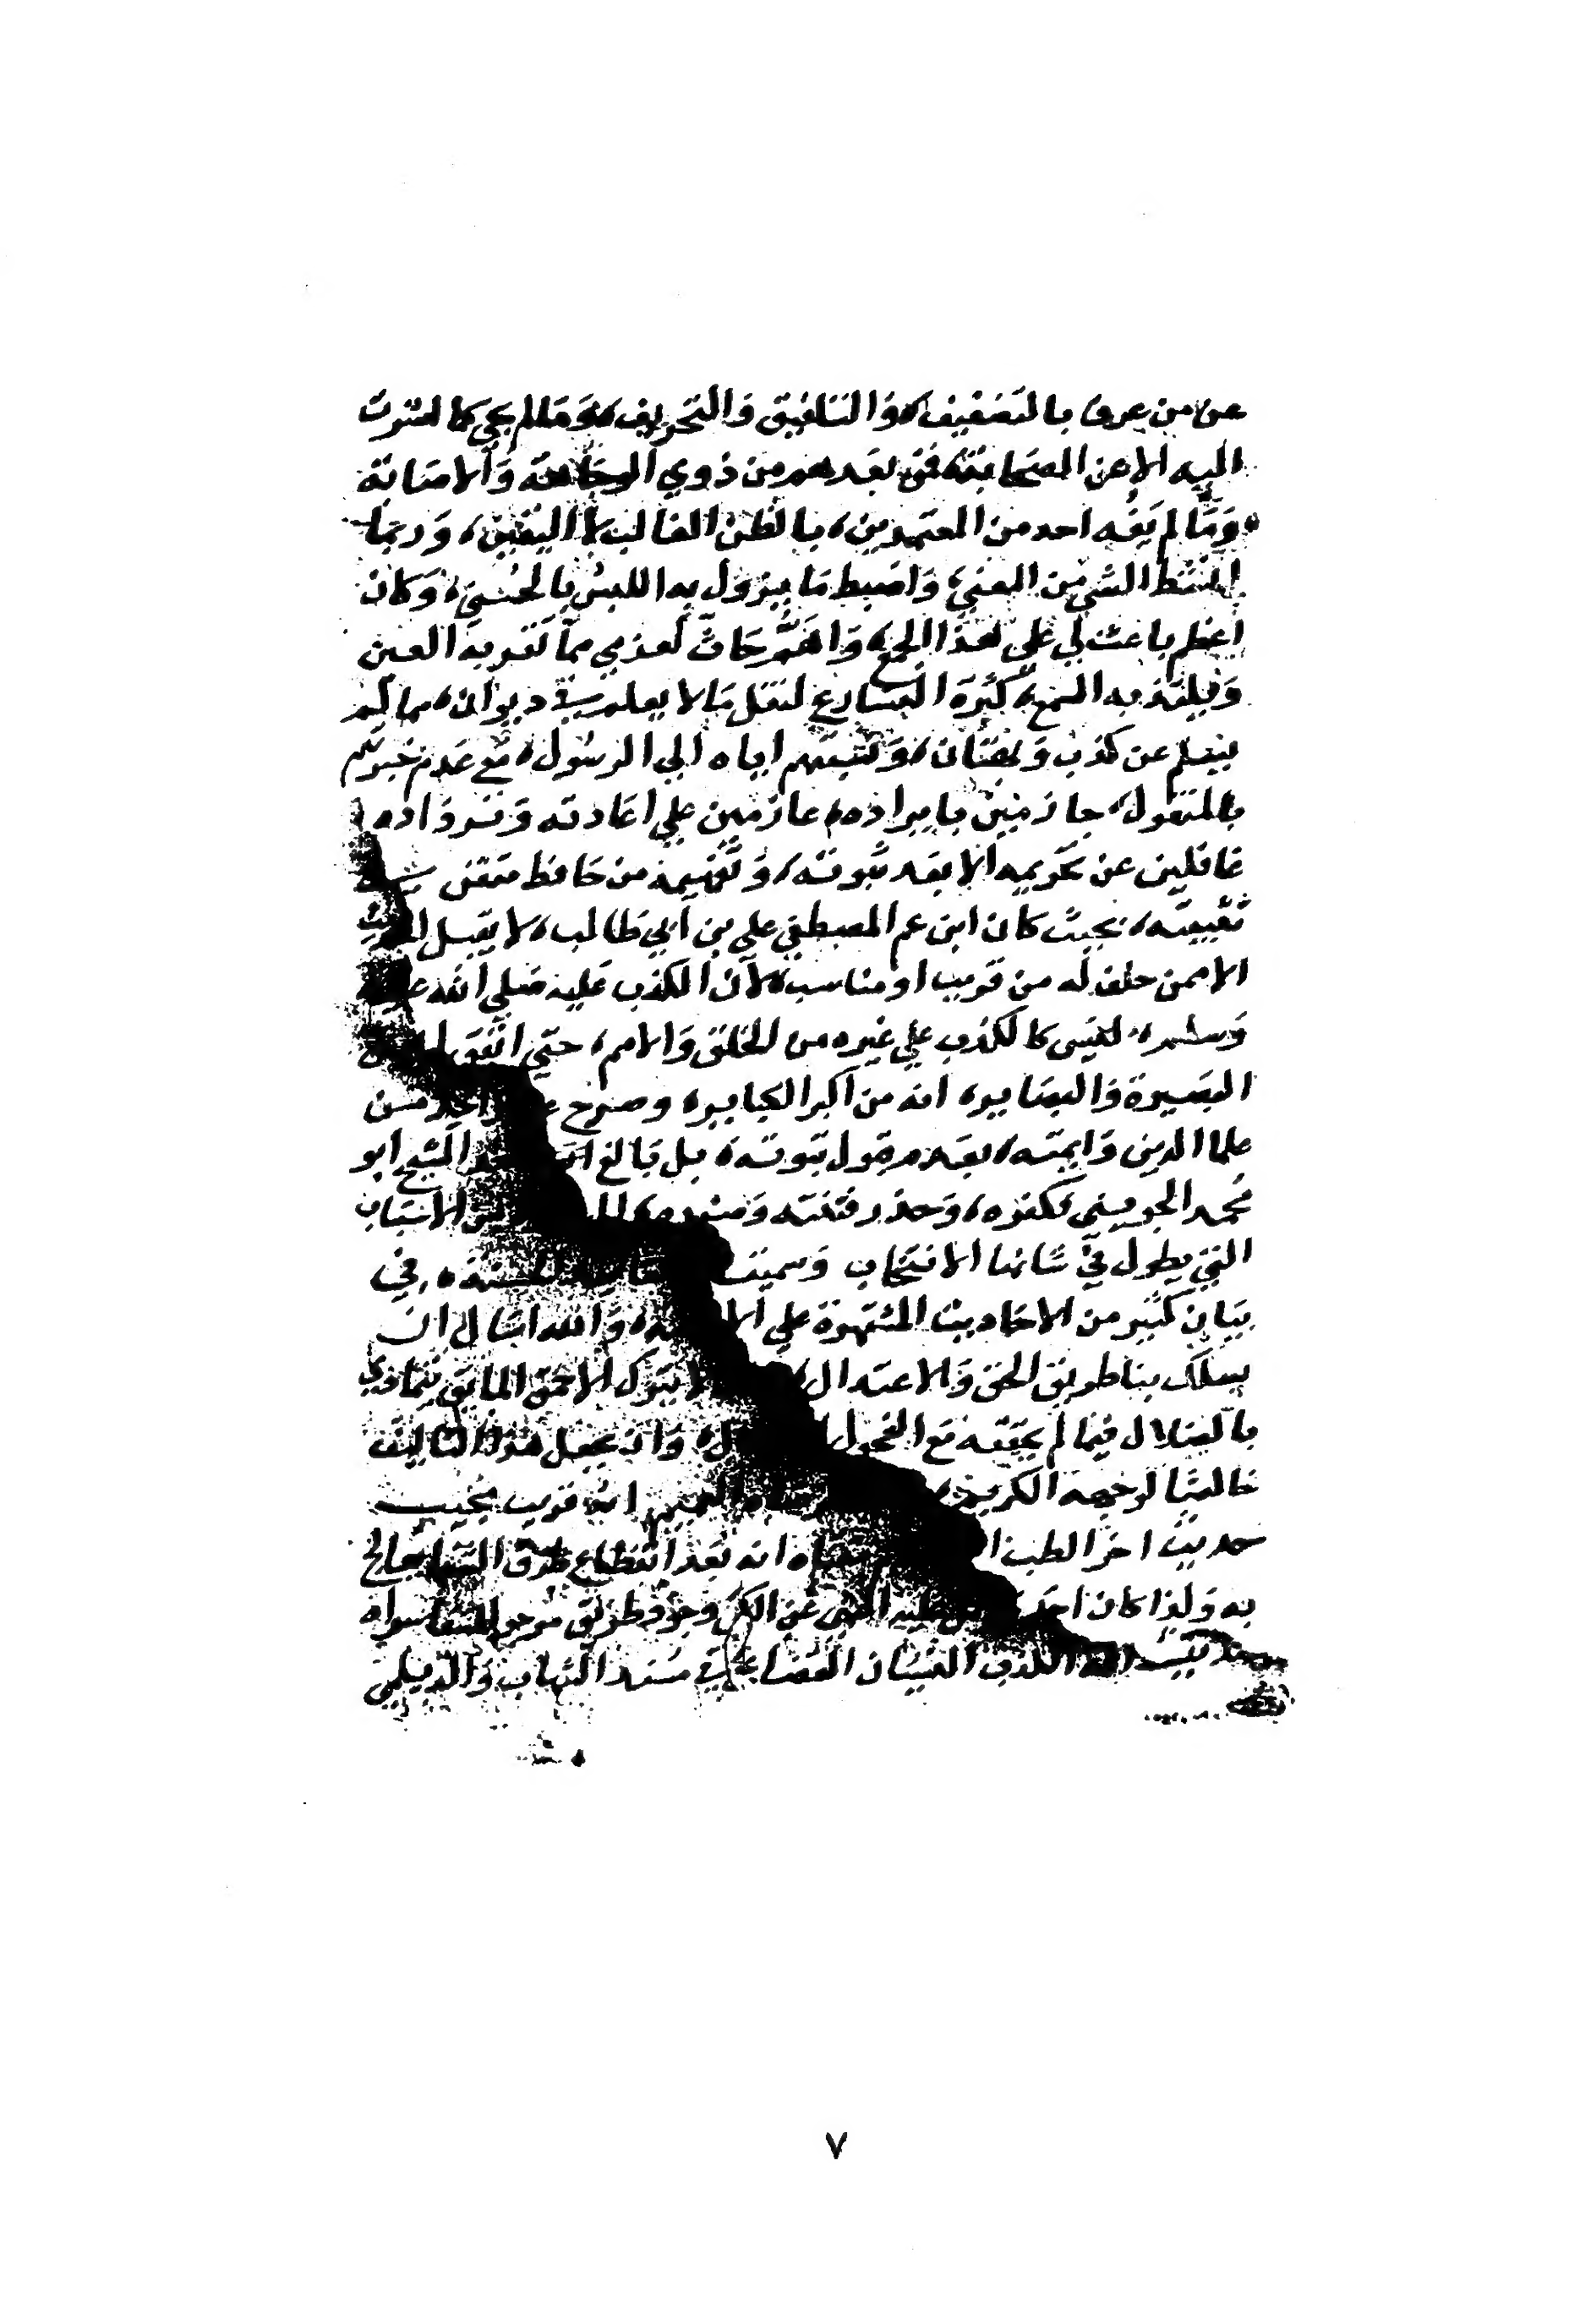 عن من عرف بالتضعيف، والتلفيق والتحريف، وما لم يجي كما اشرت
اليه الا عن الصحابة، فمن بعدهم من ذوي الوجاهة والاصابة
وما لم يفه احد من المعتمدين، بالظن الغالب لا اليقين، وربما
انشط الشي من المعني، واضبط ما يزول به اللبس بالحسني، وكان
اعظم باعث لي علي هذا الجمع، واهم حاث لعزمي مما تقر به العين
ويلتذ به السمع، كثرة التسارع لنقل ما لا يعلم في ديوان، مما لم
ينعلم عن كذب وبهتان، ونسبتهم اياه الي الرسول، مع عدم خبرتهم
بالمنقول، جازمين بايراده، عازمين علي اعادته وترداده
غافلين عن تحريمه الا بعد ثبوته، وتفهيمه من حافظ متقن
تثبيته، بحيث كان ابن عم المصطفي علي بن ابي طالب، لا يقبل
الا ممن حلف له من قريب او مناسب، لان الكذب عليه صلي الله
وسلم، ليس كالكذب علي غيره من الخلق والامم، حتي اتفق
البصيرة والبصاير، انه من اكبر الكباير، وصرح من
علما الدين وايمته، بعدم قبول توبته، بل بالغ الشيخ ابو
محمد الجويني فكفره، وحذر فتنته وضرره، الاسباب
التي يطول في شانها الانتخاب وسميته في
بيان كثير من الاحاديث المشتهرة علي الالسنة، والله اسال ان
يسلك بنا طريق الحق والاعتدال، لا يترك الاحمق المايق يتمادي
بالضلال فيما لم يحققه مع الفحول وان يجعل هذا التاليف
خالصا لوجهه الكريم، انه قريب مجيب
حديث اخر الطب انه بعد انقطاع طرق الشفا يعالج
به ولذا كان احد عليه النهي عن الكي وجود طريق مرجو للشفا سواه
الكذب النسيان القضاعي في مسند الشهاب والديلمي
٧